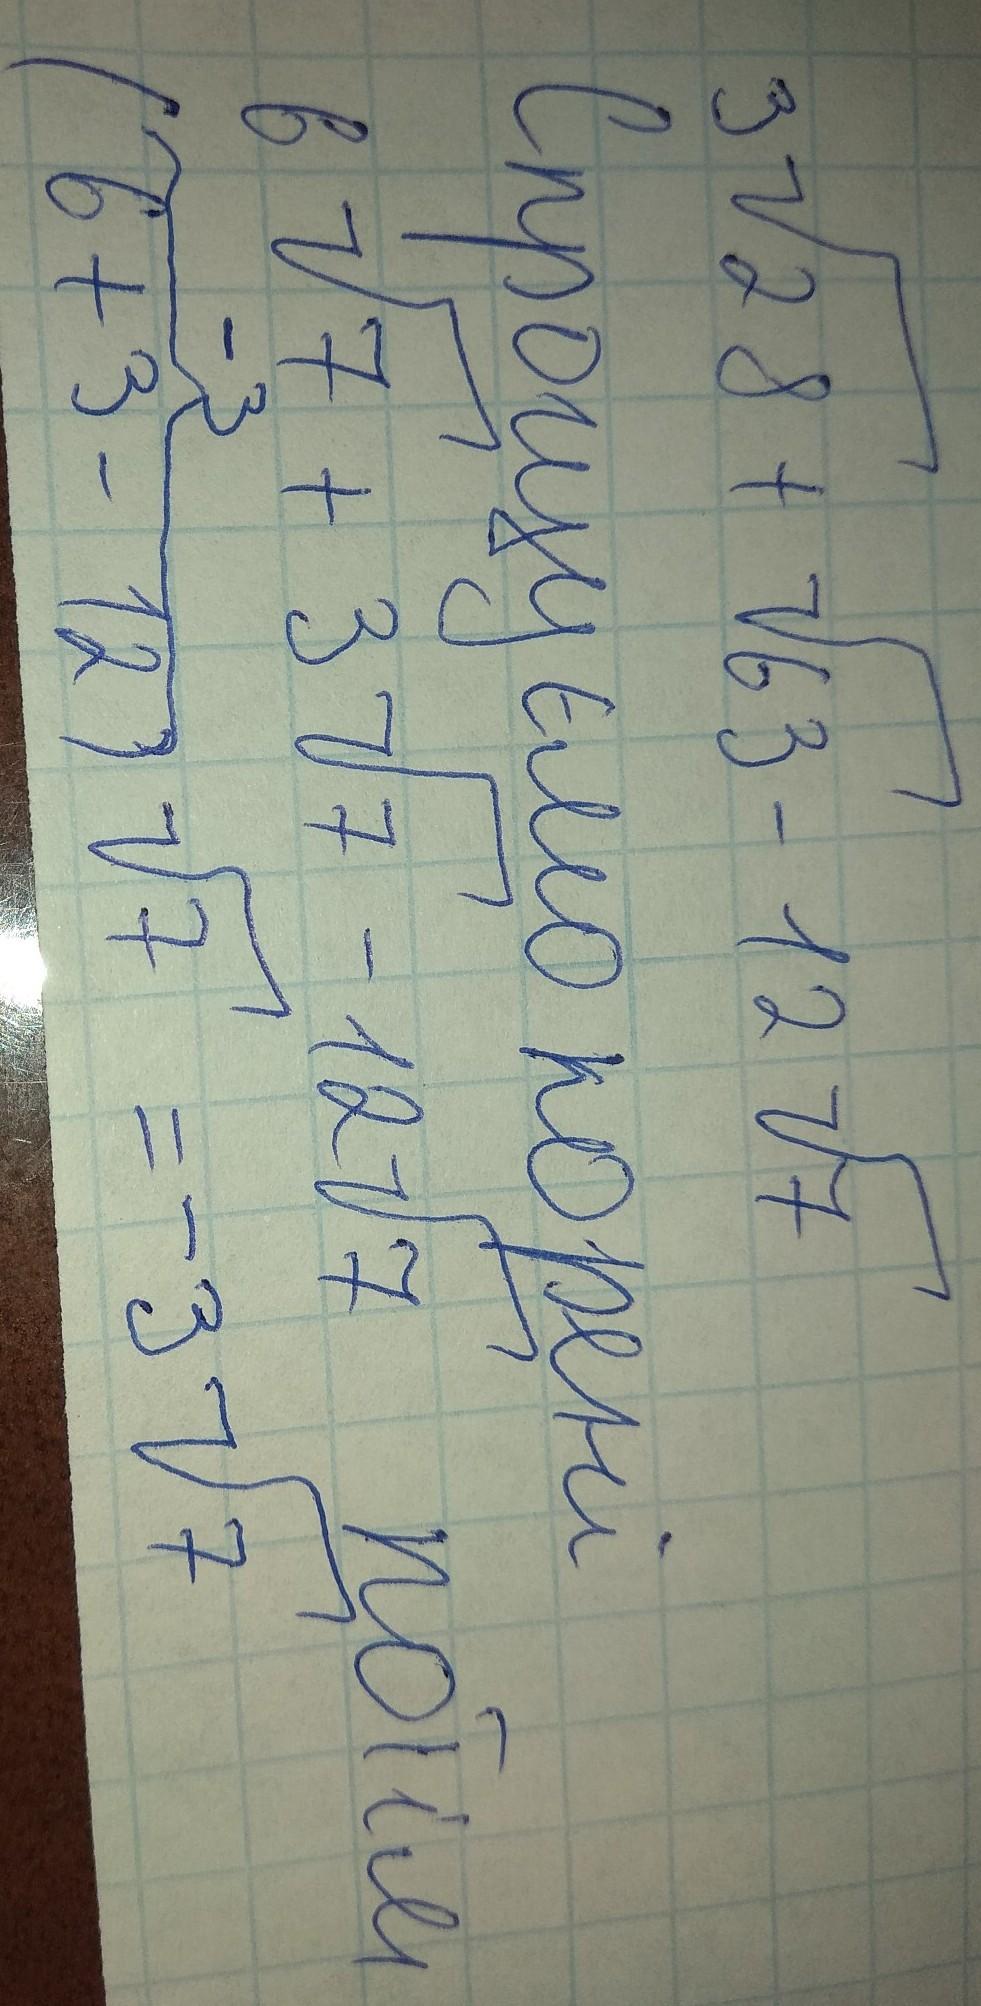 3√28 + √63 - 12√7
Спрощуємо корені
6√7 + 3√7 - 12√7 потім
-3
(6 + 3 - 12)√7 = -3√7